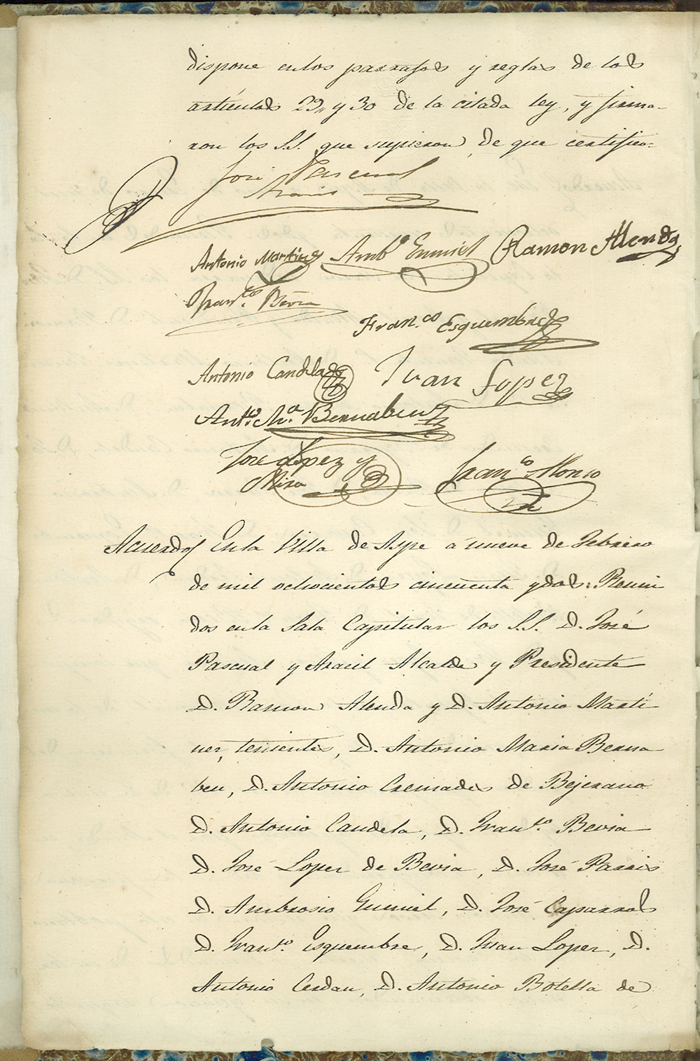 dispone en los parrafos y reglas de los
artículos 29, y 30 de la citada ley, y firma-
ron los S.S. que supieron, de que certifico.
José Pascual
Antonio Martinez Ambº Gumiel Ramon Alenda
Franco Bevia
Fran.co Esquembre
Antonio Candela Juan Lopez
Antº Mª Bernabeu
José Lopez y
Mira Franco Alonso
Acuerdo En la Villa de Aspe a nueve de Febrero
de mil ochocientos cincuenta y dos: Reuni
dos en la Sala Capitular los S.S. D. José
Pascual y Aracil Alcalde y Presidente
D. Ramon Alenda y D. Antonio Marti
nez, tenientes, D. Antonio Maria Berna
beu, D. Antonio Cremades de Bejerano
D. Antonio Candela, D. Franco Bevia
D. José Lopez de Bevia, D. José
D. Ambrosio Gumiel, D. José Caparros
D. Franco Esquembre, D. Juan Lopez, D.
Antonio Cerdan, D. Antonio Botella de